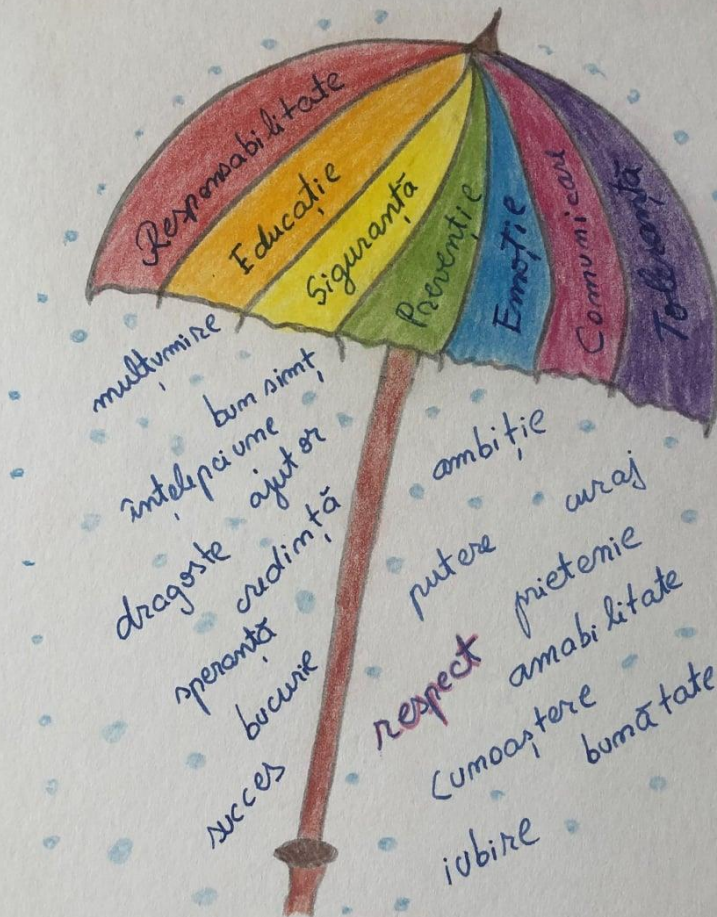 Responsabilitate
Educație
Siguranță
Prevenție
Emoție
Comunicare
Toleranță
mulțumire
bun simț
înțelepciune
ajutor
dragoste
credință
speranță
bucurie
succes
ambiție
curaj
putere
prietenie
respect
amabilitate
cunoaștere
bunătate
iubire